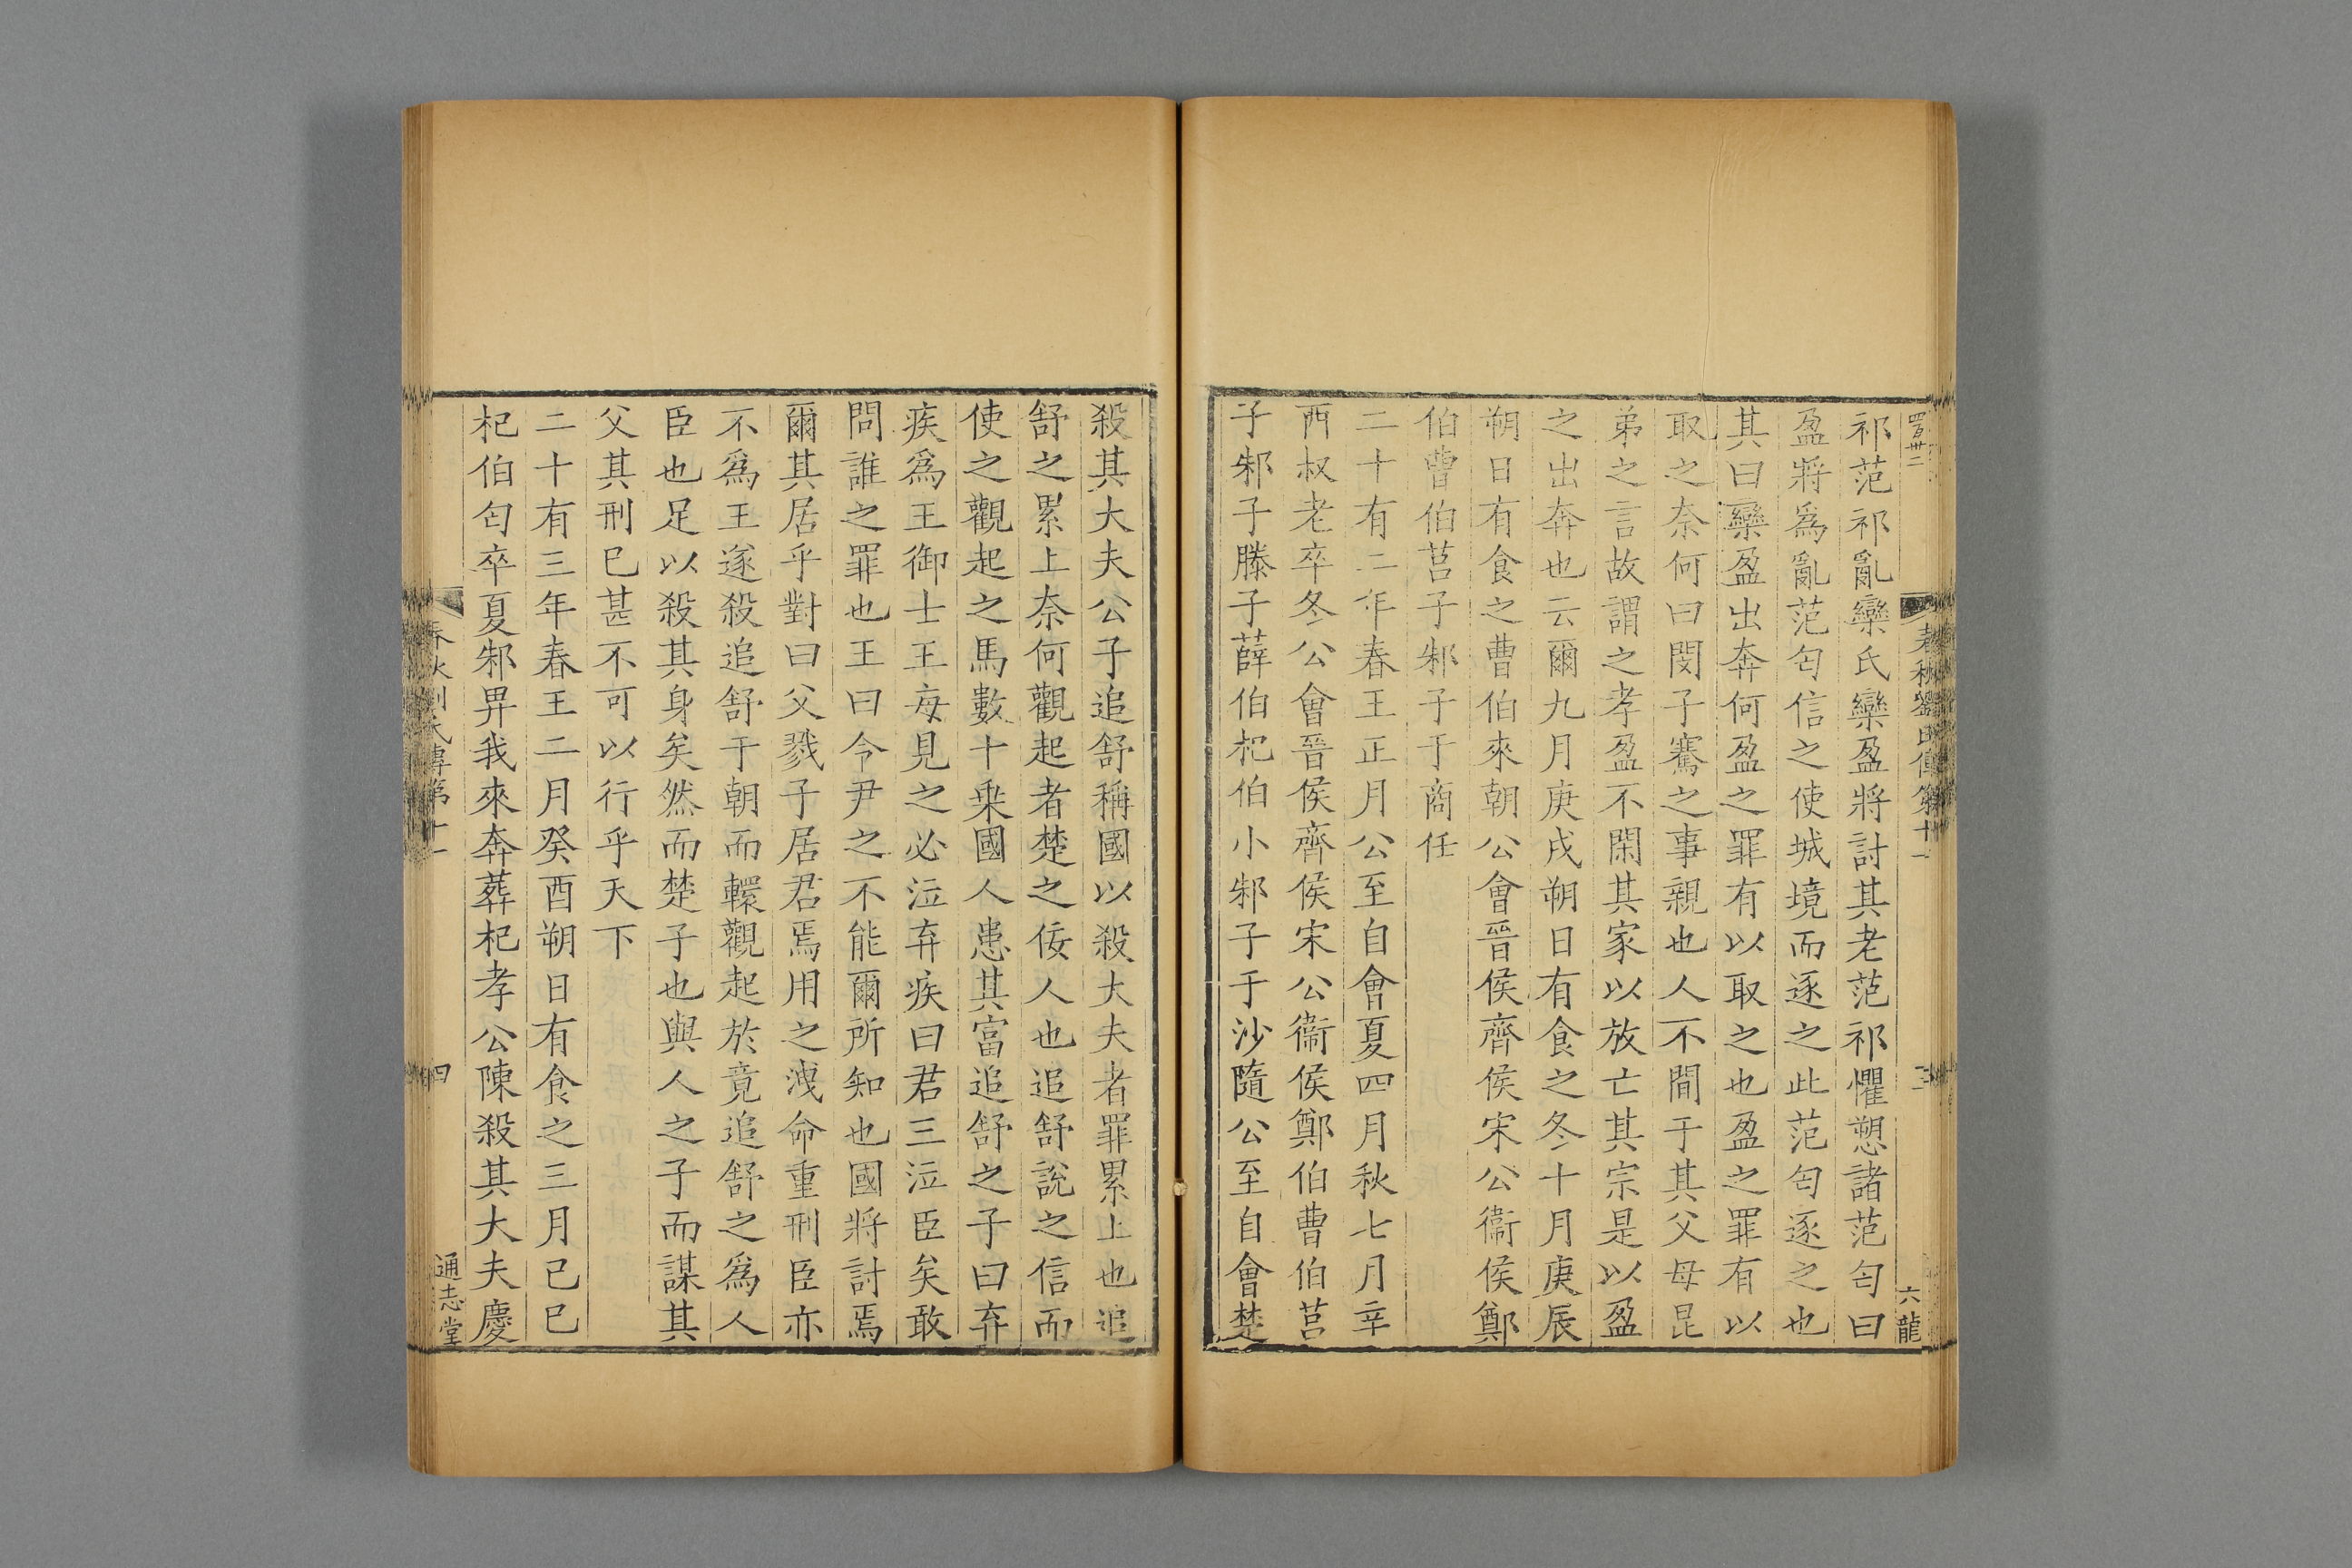 祁范祁亂欒氏欒盈將討其老范祁懼愬諸范匄曰
盈將爲亂范匄信之使城境而逐之此范匄逐之也
其曰欒盈出奔何盈之罪有以取之也盈之罪有以
取之奈何曰閔子騫之事親也人不間于其父母昆
弟之言故謂之孝盈不閑其家以放亡其宗是以盈
之出奔也云爾九月庚戌朔日有食之冬十月庚辰
朔日有食之曹伯來朝公會晉侯齊侯宋公衞侯鄭
伯曹伯莒子邾子于商任
二十有二年春王正月公至自會夏四月秋七月辛
酉叔老卒冬公會晉侯齊侯宋公衞侯鄭伯曹伯莒
子邾子滕子薛伯杞伯小邾子于沙隨公至自會楚
春秋劉氏傳第十一
三
六龍
殺其大夫公子追舒稱國以殺大夫者罪累上也追
舒之累上奈何觀起者楚之佞人也追舒說之信而
使之觀起之馬數十乗國人患其富追舒之子曰弃
疾爲王御士王每見之必泣弃疾曰君三泣臣矣敢
問誰之罪也王曰令尹之不能爾所知也國將討焉
爾其居乎對曰父戮子居君焉用之洩命重刑臣亦
不爲王遂殺追舒于朝而轘觀起於竟追舒之爲人
臣也足以殺其身矣然而楚子也與人之子而謀其
父其刑巳甚不可以行乎天下
二十有三年春王二月癸酉朔日有食之三月己巳
杞伯匄卒夏邾畀我來奔葬杞孝公陳殺其大夫慶
春秋劉氏傳第十一
四
通志堂